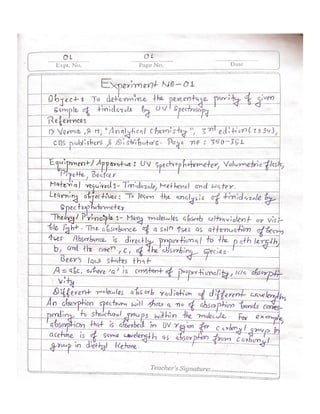 01
01
Expt. No.
Page No.
Date
Experiment NO-01
Object: To determine the percentage purity of given
sample of tinidazole by UV Spectroscopy
References
Verma, R. M, "Analytical Chemistry", 3rd edition (1994),
CBS publishers & Distributors. Page no: 340-361
Equipment/ Apparatus: UV Spectrophotometer, Volumetric flask,
Pipette, Beaker
Material required:- Tinidazole, Methanol and water.
Learning objectives: To learn the analysis of tinidazole by
Spectrophotometer
Theory/ Principle:- Many molecules absorb ultraviolet or visi-
ble light. The absorbance of a soln as attenuation of beam
Absorbance is directly proportional to the path length,
b, and the concn, c, of the absorbing species
Beer's law states that
A = abc, where 'a' is constant of proportionality, absorpti-
vity
Different molecules absorb radiation of different wavelengths
An absorption spectrum will show a no of absorption bands corres-
ponding to structural groups within the molecule. For example,
absorption that is observed in UV region for carbonyl group in
acetone is of same wavelength as absorption from carbonyl
group in diethyl Ketone.
Teacher's Signature: